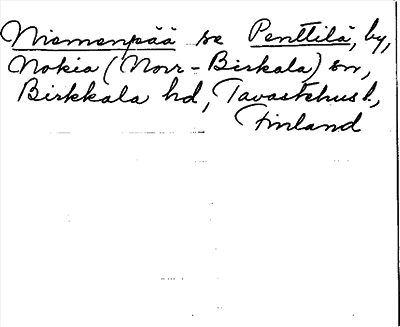 Niemenpää se Penttilä, by,
Nokia (Norr-Birkala) sn,
Birkkala hd, Tavastehus l.,
Finland